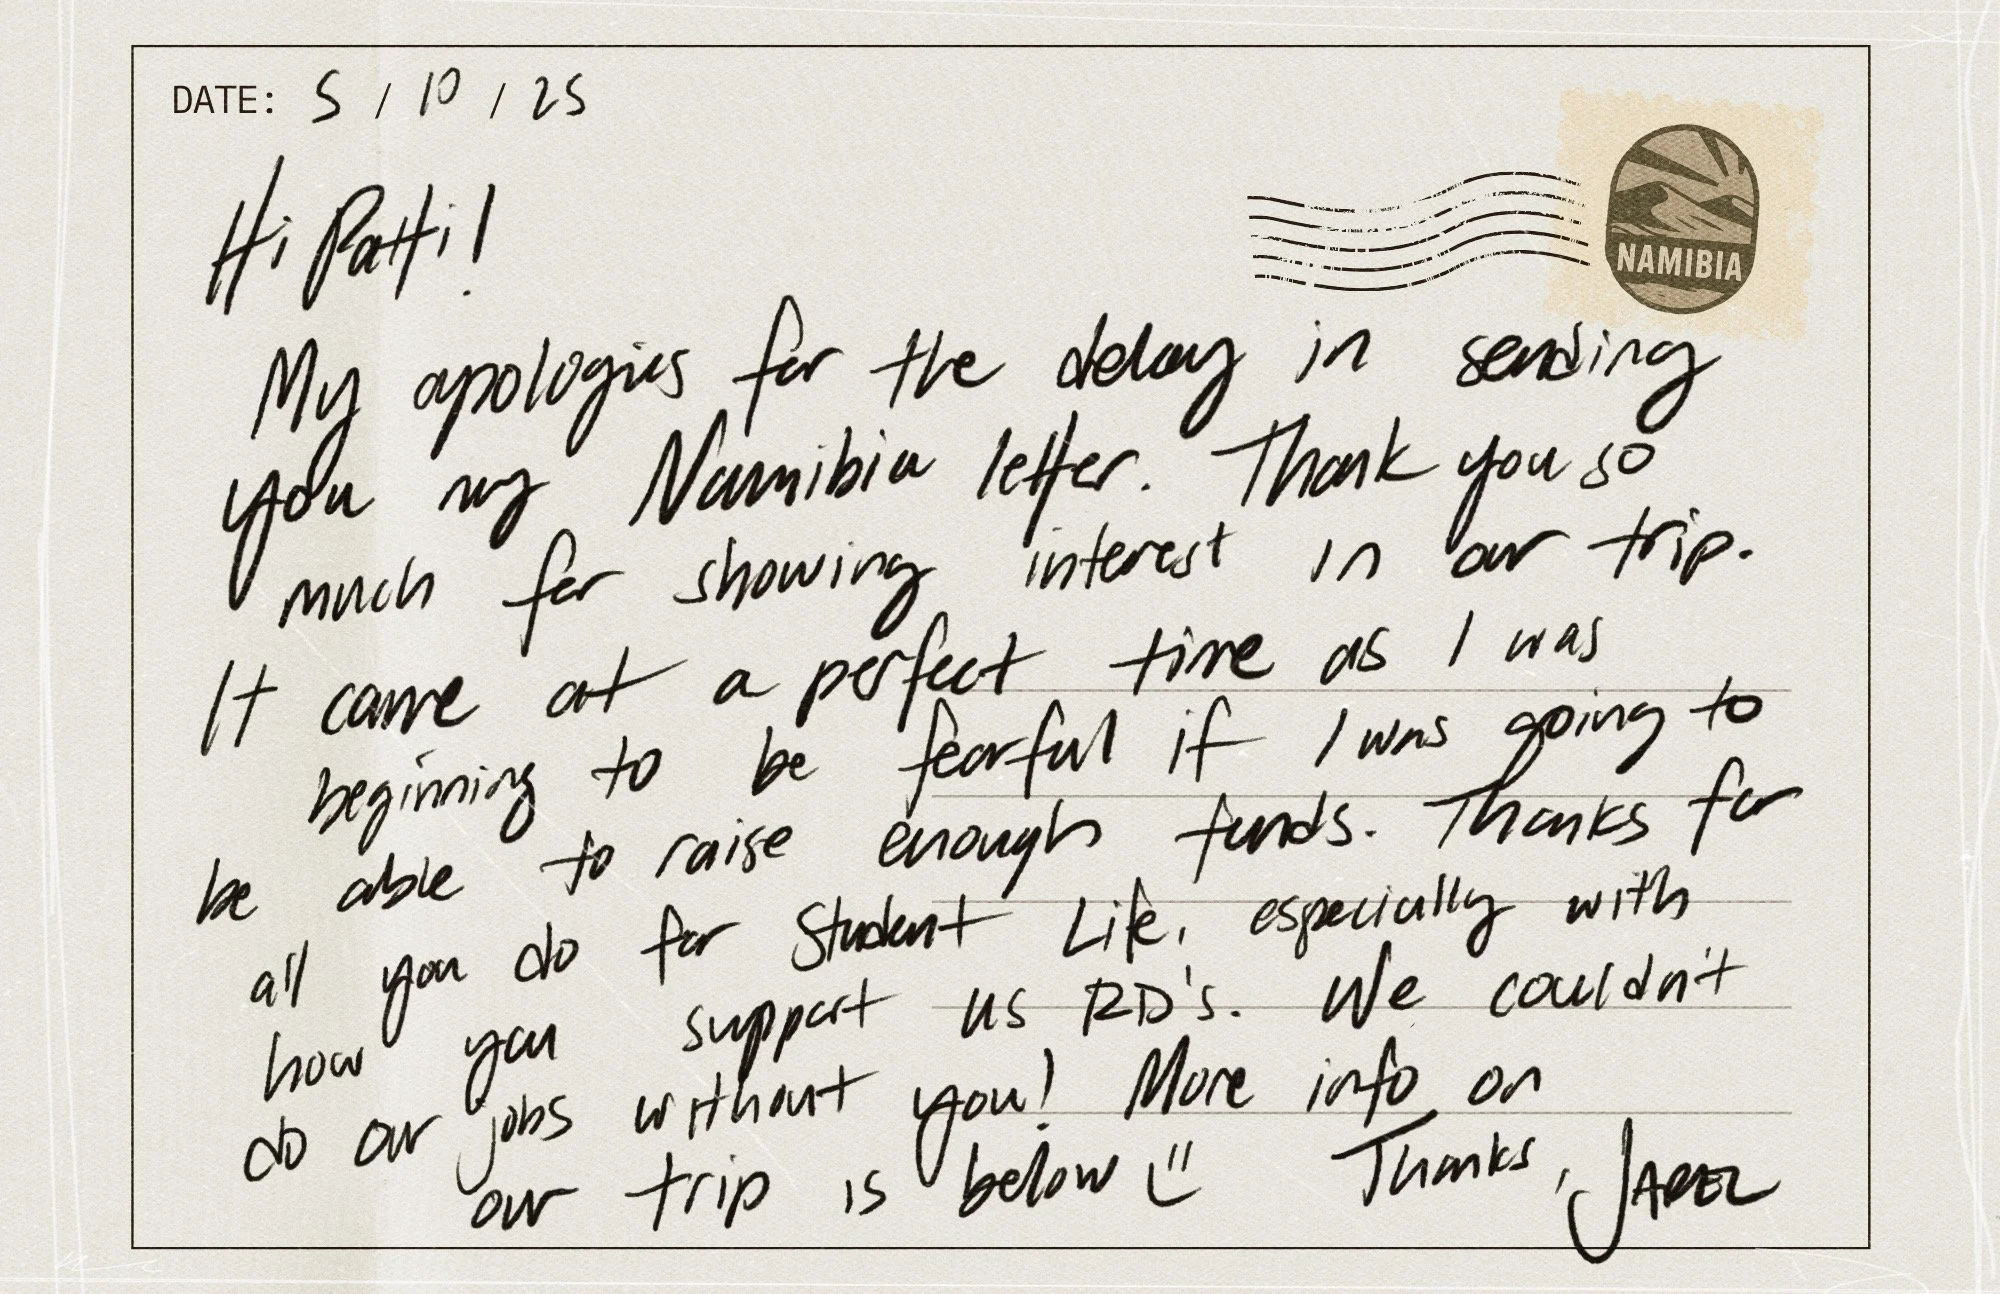 DATE: 5 / 10 / 25
NAMIBIA
Hi Patti!
My apologies for the delay in sending
you my Namibia letter. Thank you so
much for showing interest in our trip.
It came at a perfect time as I was
beginning to be fearful if I was going to
be able to raise enough funds. Thanks for
all you do for Student Life, especially with
how you support us RD's. We couldn't
do our jobs without you! More info on
our trip is below Thanks, JAREL